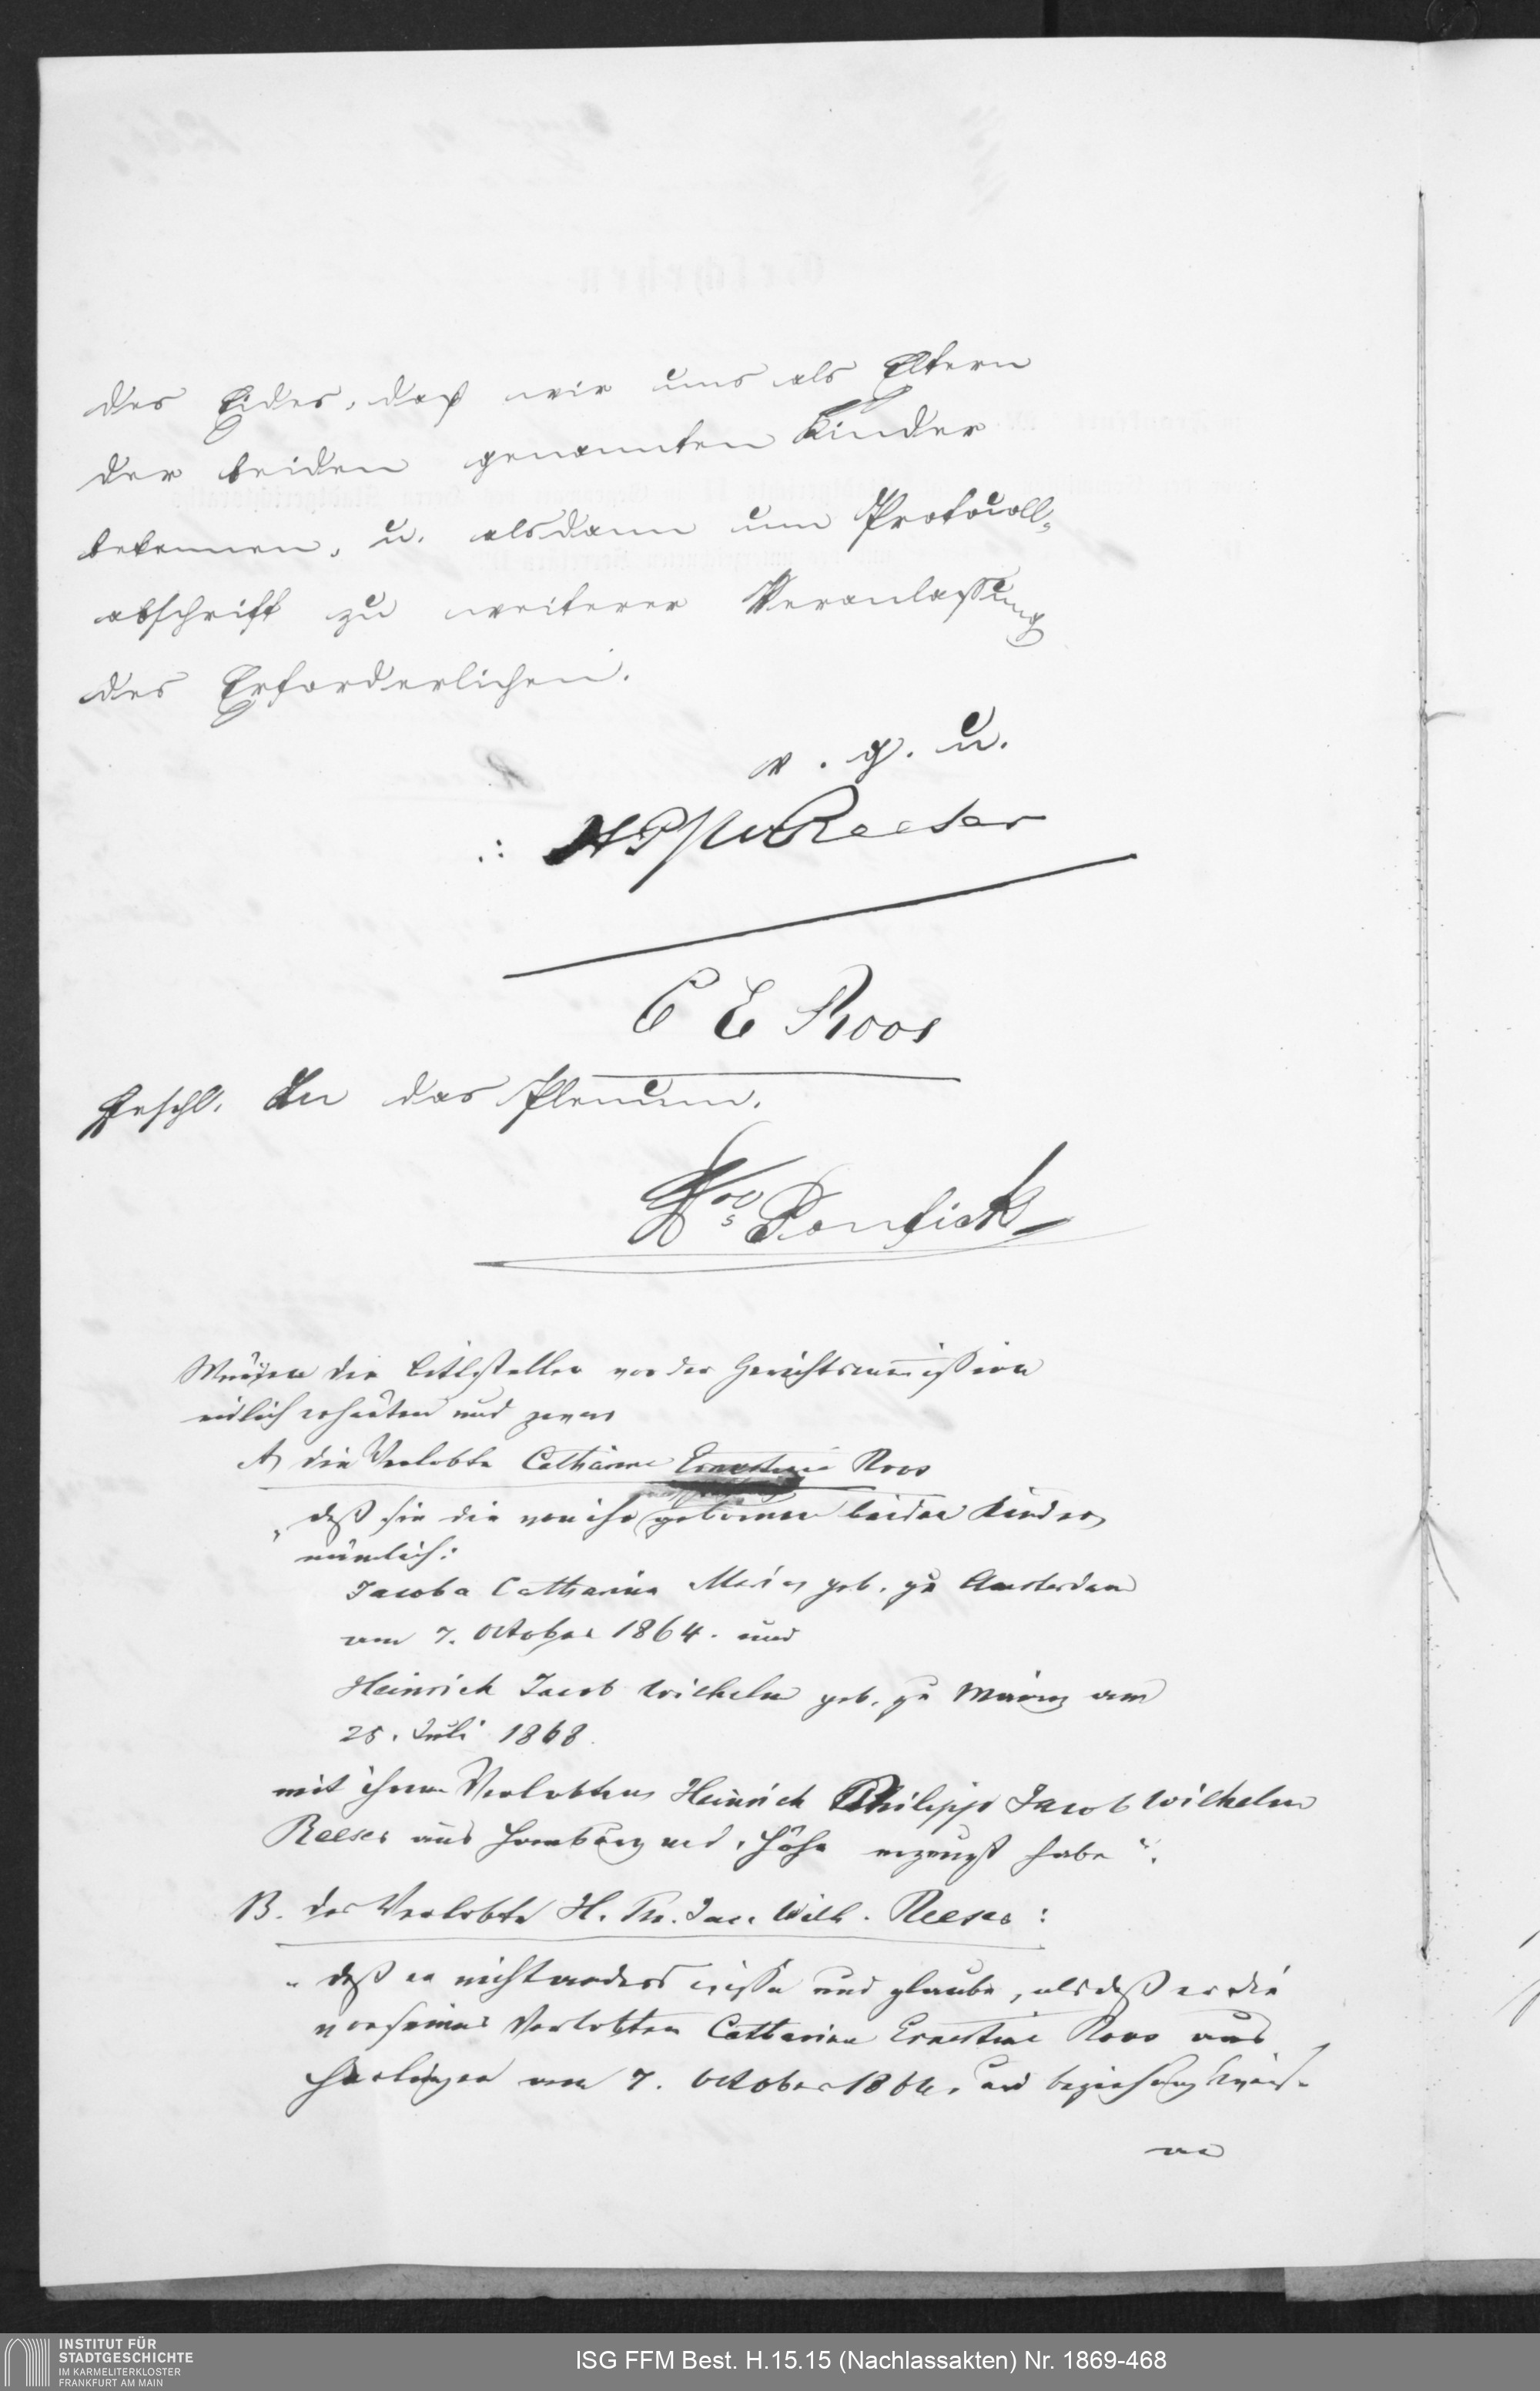 des Eides, daß wir uns als Eltern
der beiden genannten Kinder
bekennen, u. alsdann um Protocoll-
abschrift zu weiterer Veranlassung
des Erforderlichen.
v. g. u.
HPJW Reeser
C E Roos
Beschl. An das Plenum.
Ponfick
die Bittsteller vor der Gerichtscommission
eidlich erhärten und zwar
A, die Verlobte Catharine Ernestine Roos
„daß sie die von ihr geborenen beiden Kinder,
nämlich:
Jacoba Catharina Maria, geb. zu Amsterdam
am 7. October 1864. und
Heinrich Jacob Wilhelm geb. zu Mainz am
25. Juli 1868.
mit ihrem Verlobten Heinrich Philipp Jacob Wilhelm
Reeser aus Homburg v. d. Höhe erzeugt habe“.
B. der Verlobte H. Ph. Jac. Wilh. Reeser:
„daß er nicht anders wisse und glaube, als daß er die
von seiner Verlobten Catharina Ernestine Roos aus
Harlingen am 7. October 1864. und beziehungsweise
am
INSTITUT FÜR
STADTGESCHICHTE
IM KARMELITERKLOSTER
FRANKFURT AM MAIN
ISG FFM Best. H.15.15 (Nachlassakten) Nr. 1869-468